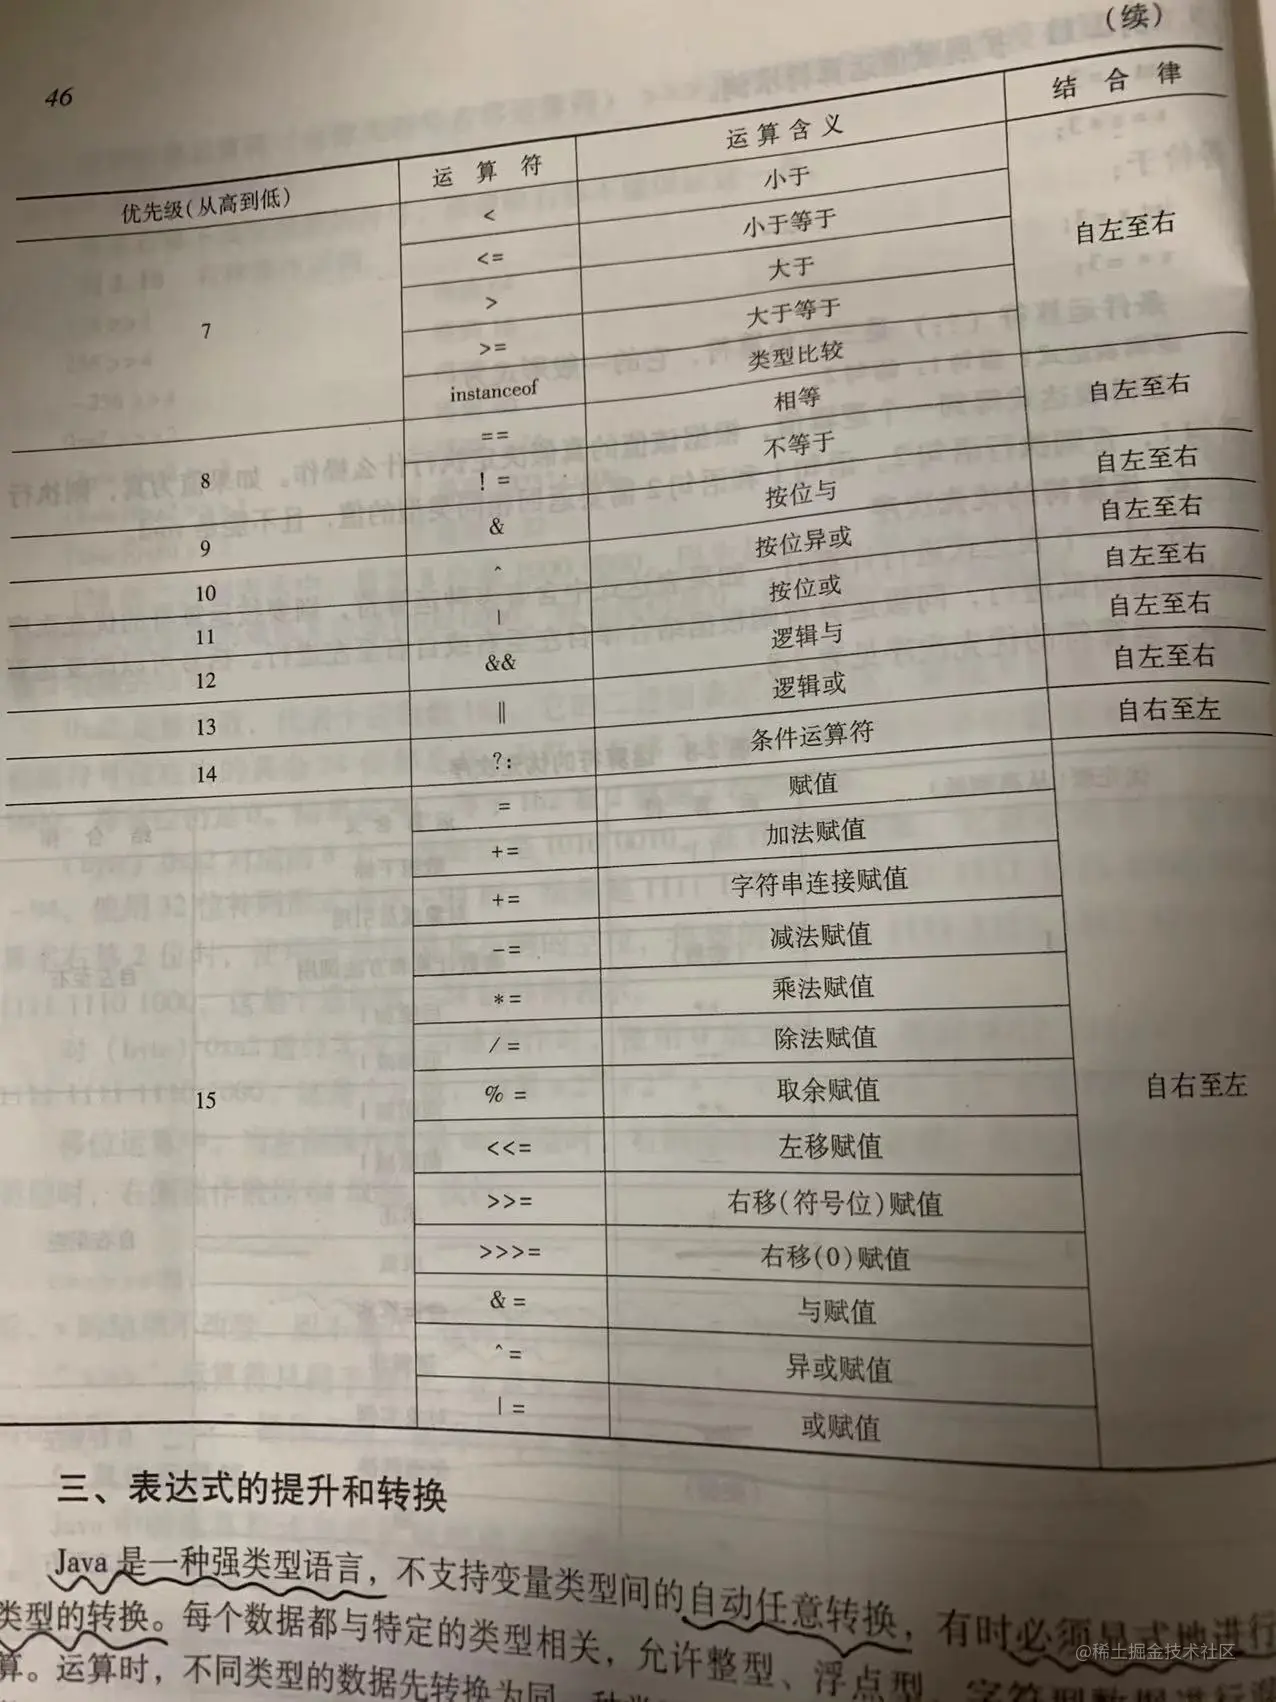 （续）
46
优先级(从高到低) 运算符 运算含义 结合律
7 < 小于 自左至右
<= 小于等于
> 大于
>= 大于等于
instanceof 类型比较
8 == 相等 自左至右
! = 不等于
9 & 按位与 自左至右
10 ^ 按位异或 自左至右
11 | 按位或 自左至右
12 && 逻辑与 自左至右
13 || 逻辑或 自左至右
14 ?: 条件运算符 自右至左
15 = 赋值 自右至左
+= 加法赋值
+= 字符串连接赋值
-= 减法赋值
*= 乘法赋值
/= 除法赋值
% = 取余赋值
<<= 左移赋值
>>= 右移(符号位)赋值
>>>= 右移(0)赋值
& = 与赋值
^= 异或赋值
| = 或赋值
三、表达式的提升和转换
Java 是一种强类型语言，不支持变量类型间的自动任意转换，有时必须显式地进行
类型的转换。每个数据都与特定的类型相关，允许整型、浮点型、字符型数据进行
算。运算时，不同类型的数据先转换为同一种
@稀土掘金技术社区